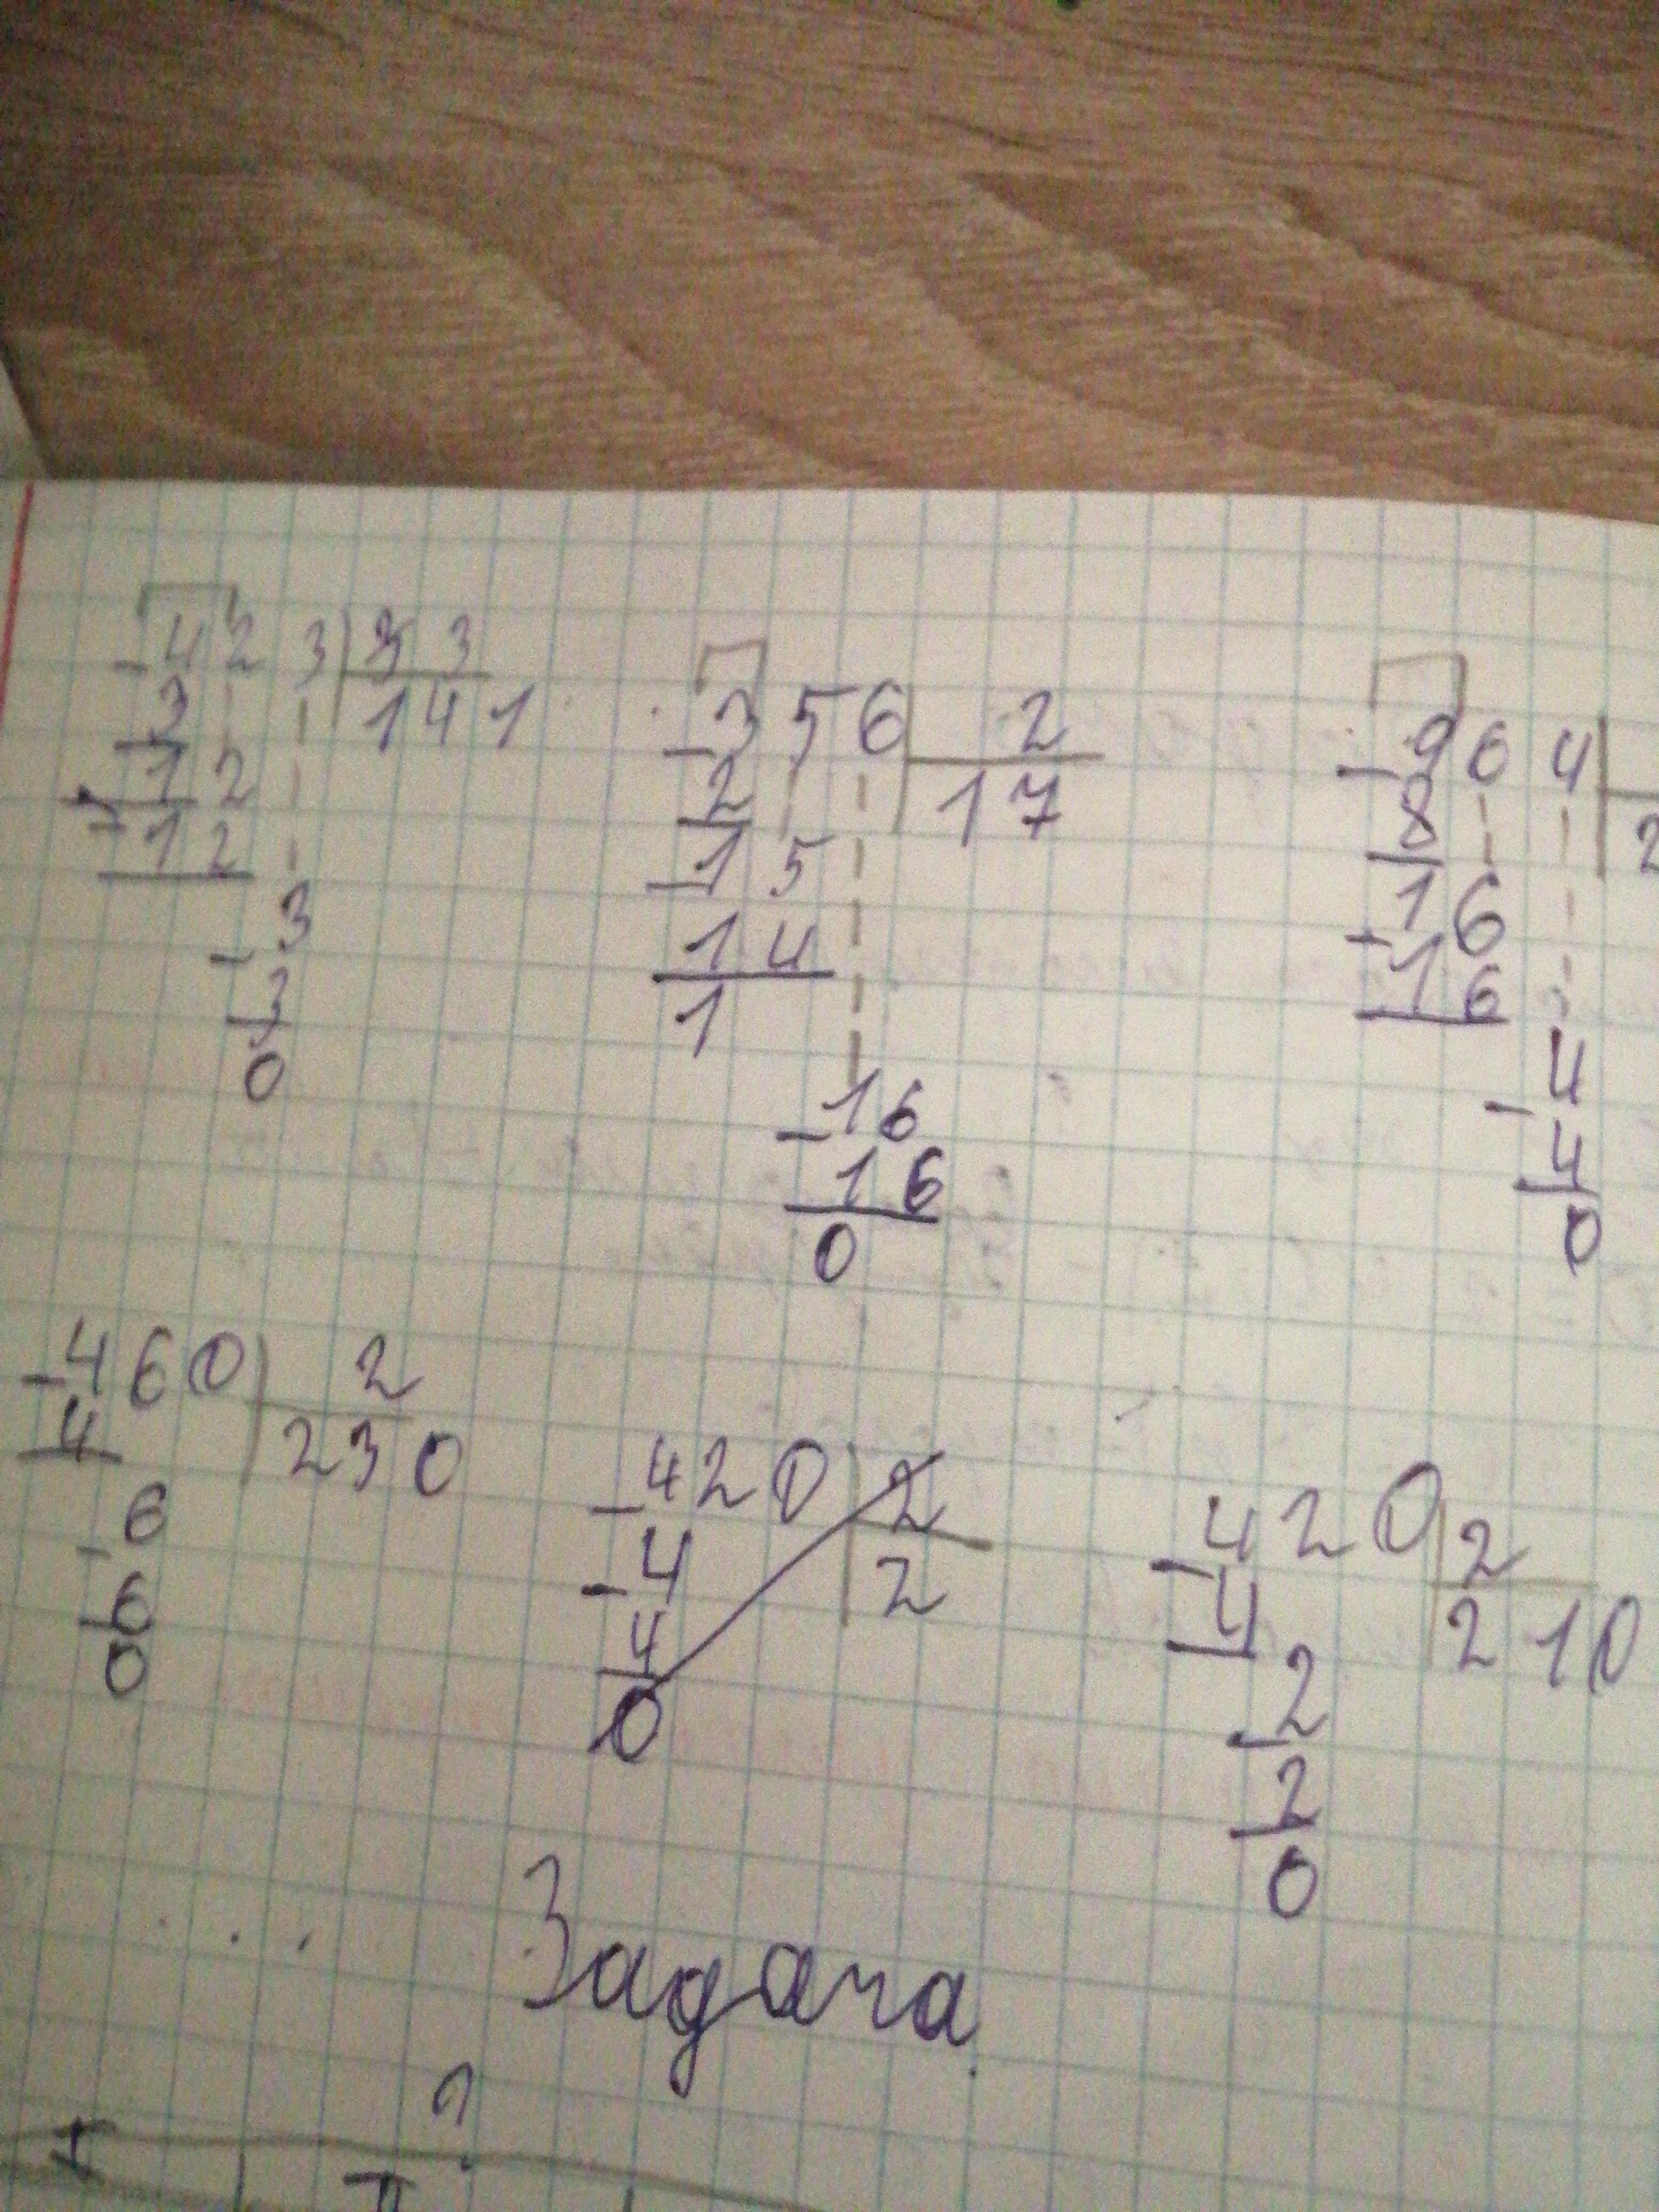 423 3
3 141
12
12
3
3
0
356 2
2 17
15
14
1
16
16
0
964
8 2
16
16
4
4
0
460 2
4 230
6
6
0
420 2
4 2
4
0
420 2
4 210
2
2
0
Задача
?